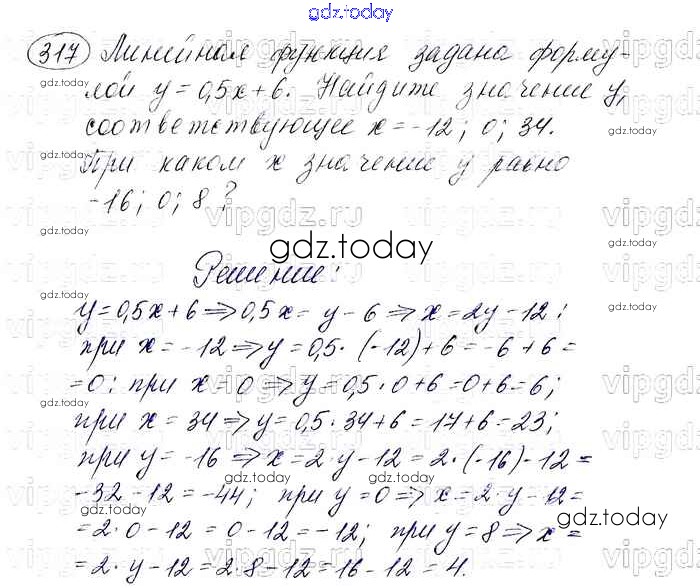 gdz.today
317 Линейная функция задана форму-
лой y = 0,5x + 6. Найдите значение y,
соответствующее x = -12; 0; 34.
При каком x значение y равно
-16; 0; 8?
gdz.today
Решение:
y = 0,5x + 6 ⇒ 0,5x = y - 6 ⇒ x = 2y - 12:
при x = -12 ⇒ y = 0,5 · (-12) + 6 = -6 + 6 =
= 0; при x = 0 ⇒ y = 0,5 · 0 + 6 = 0 + 6 = 6;
при x = 34 ⇒ y = 0,5 · 34 + 6 = 17 + 6 = 23;
при y = -16 ⇒ x = 2 · y - 12 = 2 · (-16) - 12 =
-32 - 12 = -44; при y = 0 ⇒ x = 2 · y - 12 =
= 2 · 0 - 12 = 0 - 12 = -12; при y = 8 ⇒ x =
= 2 · y - 12 = 2 · 8 - 12 = 16 - 12 = 4.